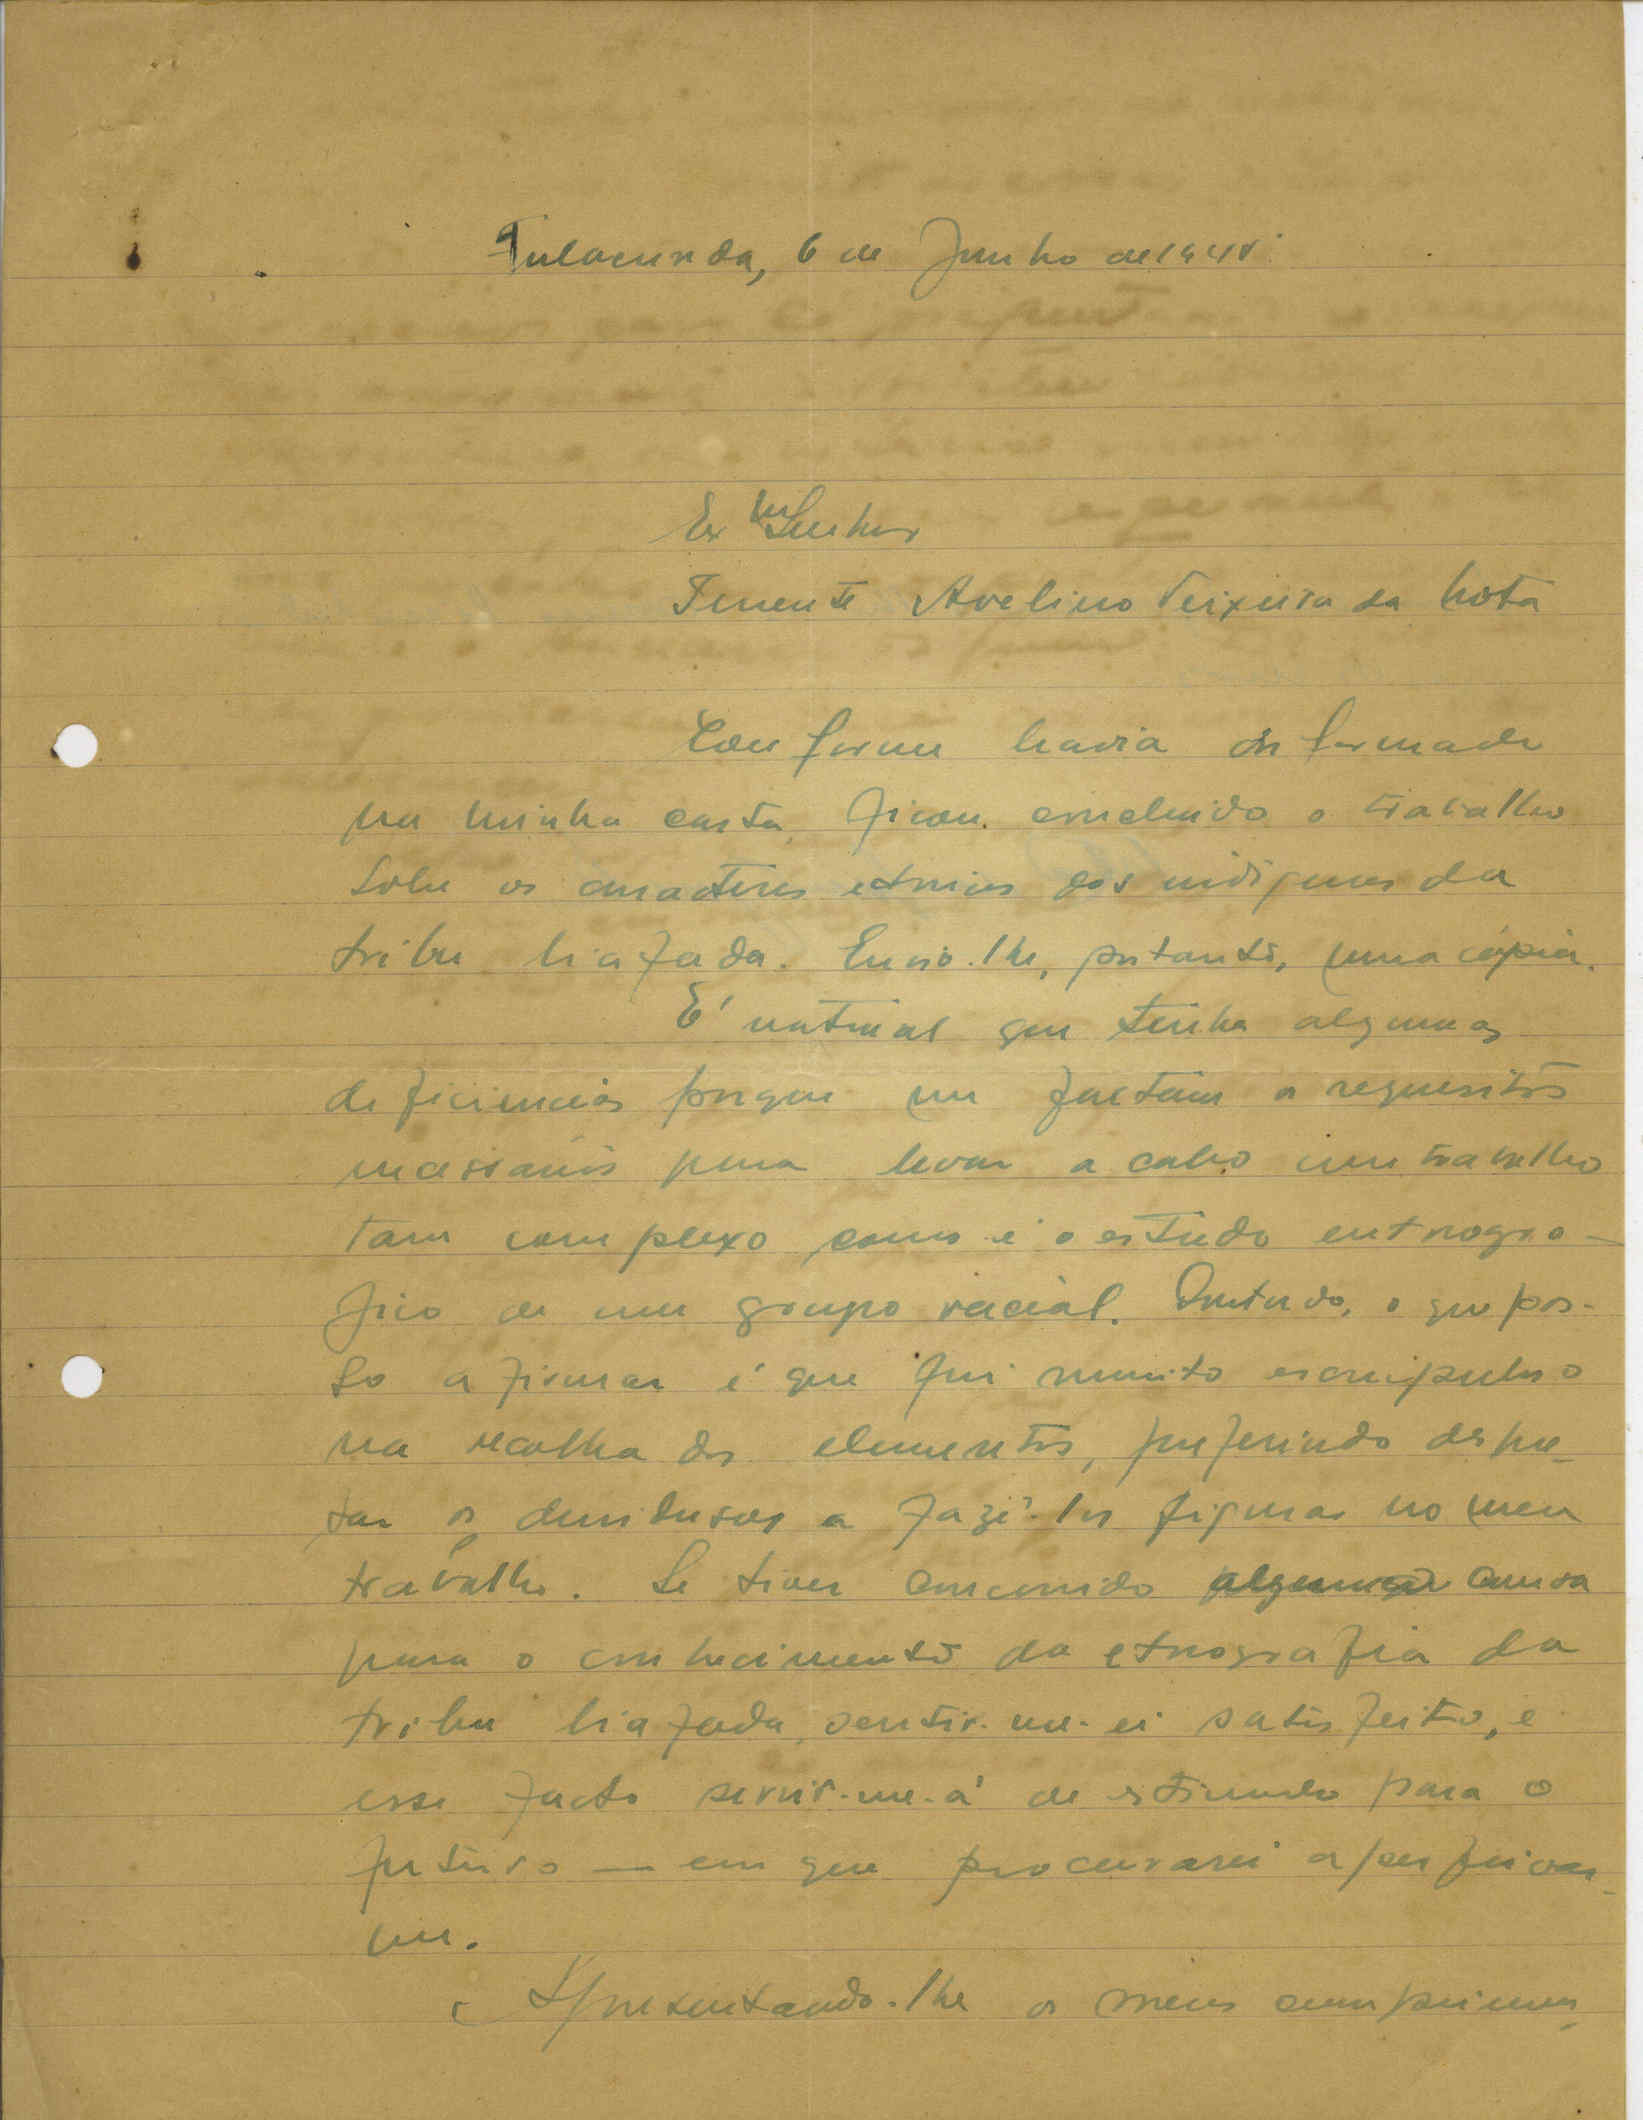 Fulacunda, 6 de Junho de 194
Exmo Senhor
Tenente Avelino Teixeira da Mota
Conforme havia informado
na minha carta, ficou concluido o trabalho
sobre os caracteres etnicos dos indigenas da
tribu biafada. Envio-lhe, portanto, uma cópia.
É natural que tenha algumas
deficiencias porque me faltam os requesitos
necessários para levar a cabo um trabalho
tam complexo como é o estudo entnogra-
fico de um grupo racial. Contudo, o que pos-
so afirmar é que fui muito escrupuloso
na recolha dos elementos, preferindo despre-
sar os duvidosos a fazê-los figurar no meu
trabalho. Se tiver concorrido
para o conhecimento da etnografia da
tribu biafada, sentir-me-ei satisfeito, e
esse facto servir-me-á de estimulo para o
futuro — em que procurarei aperfeiçoar-
me.
Apresentando-lhe os meus cumprimen-